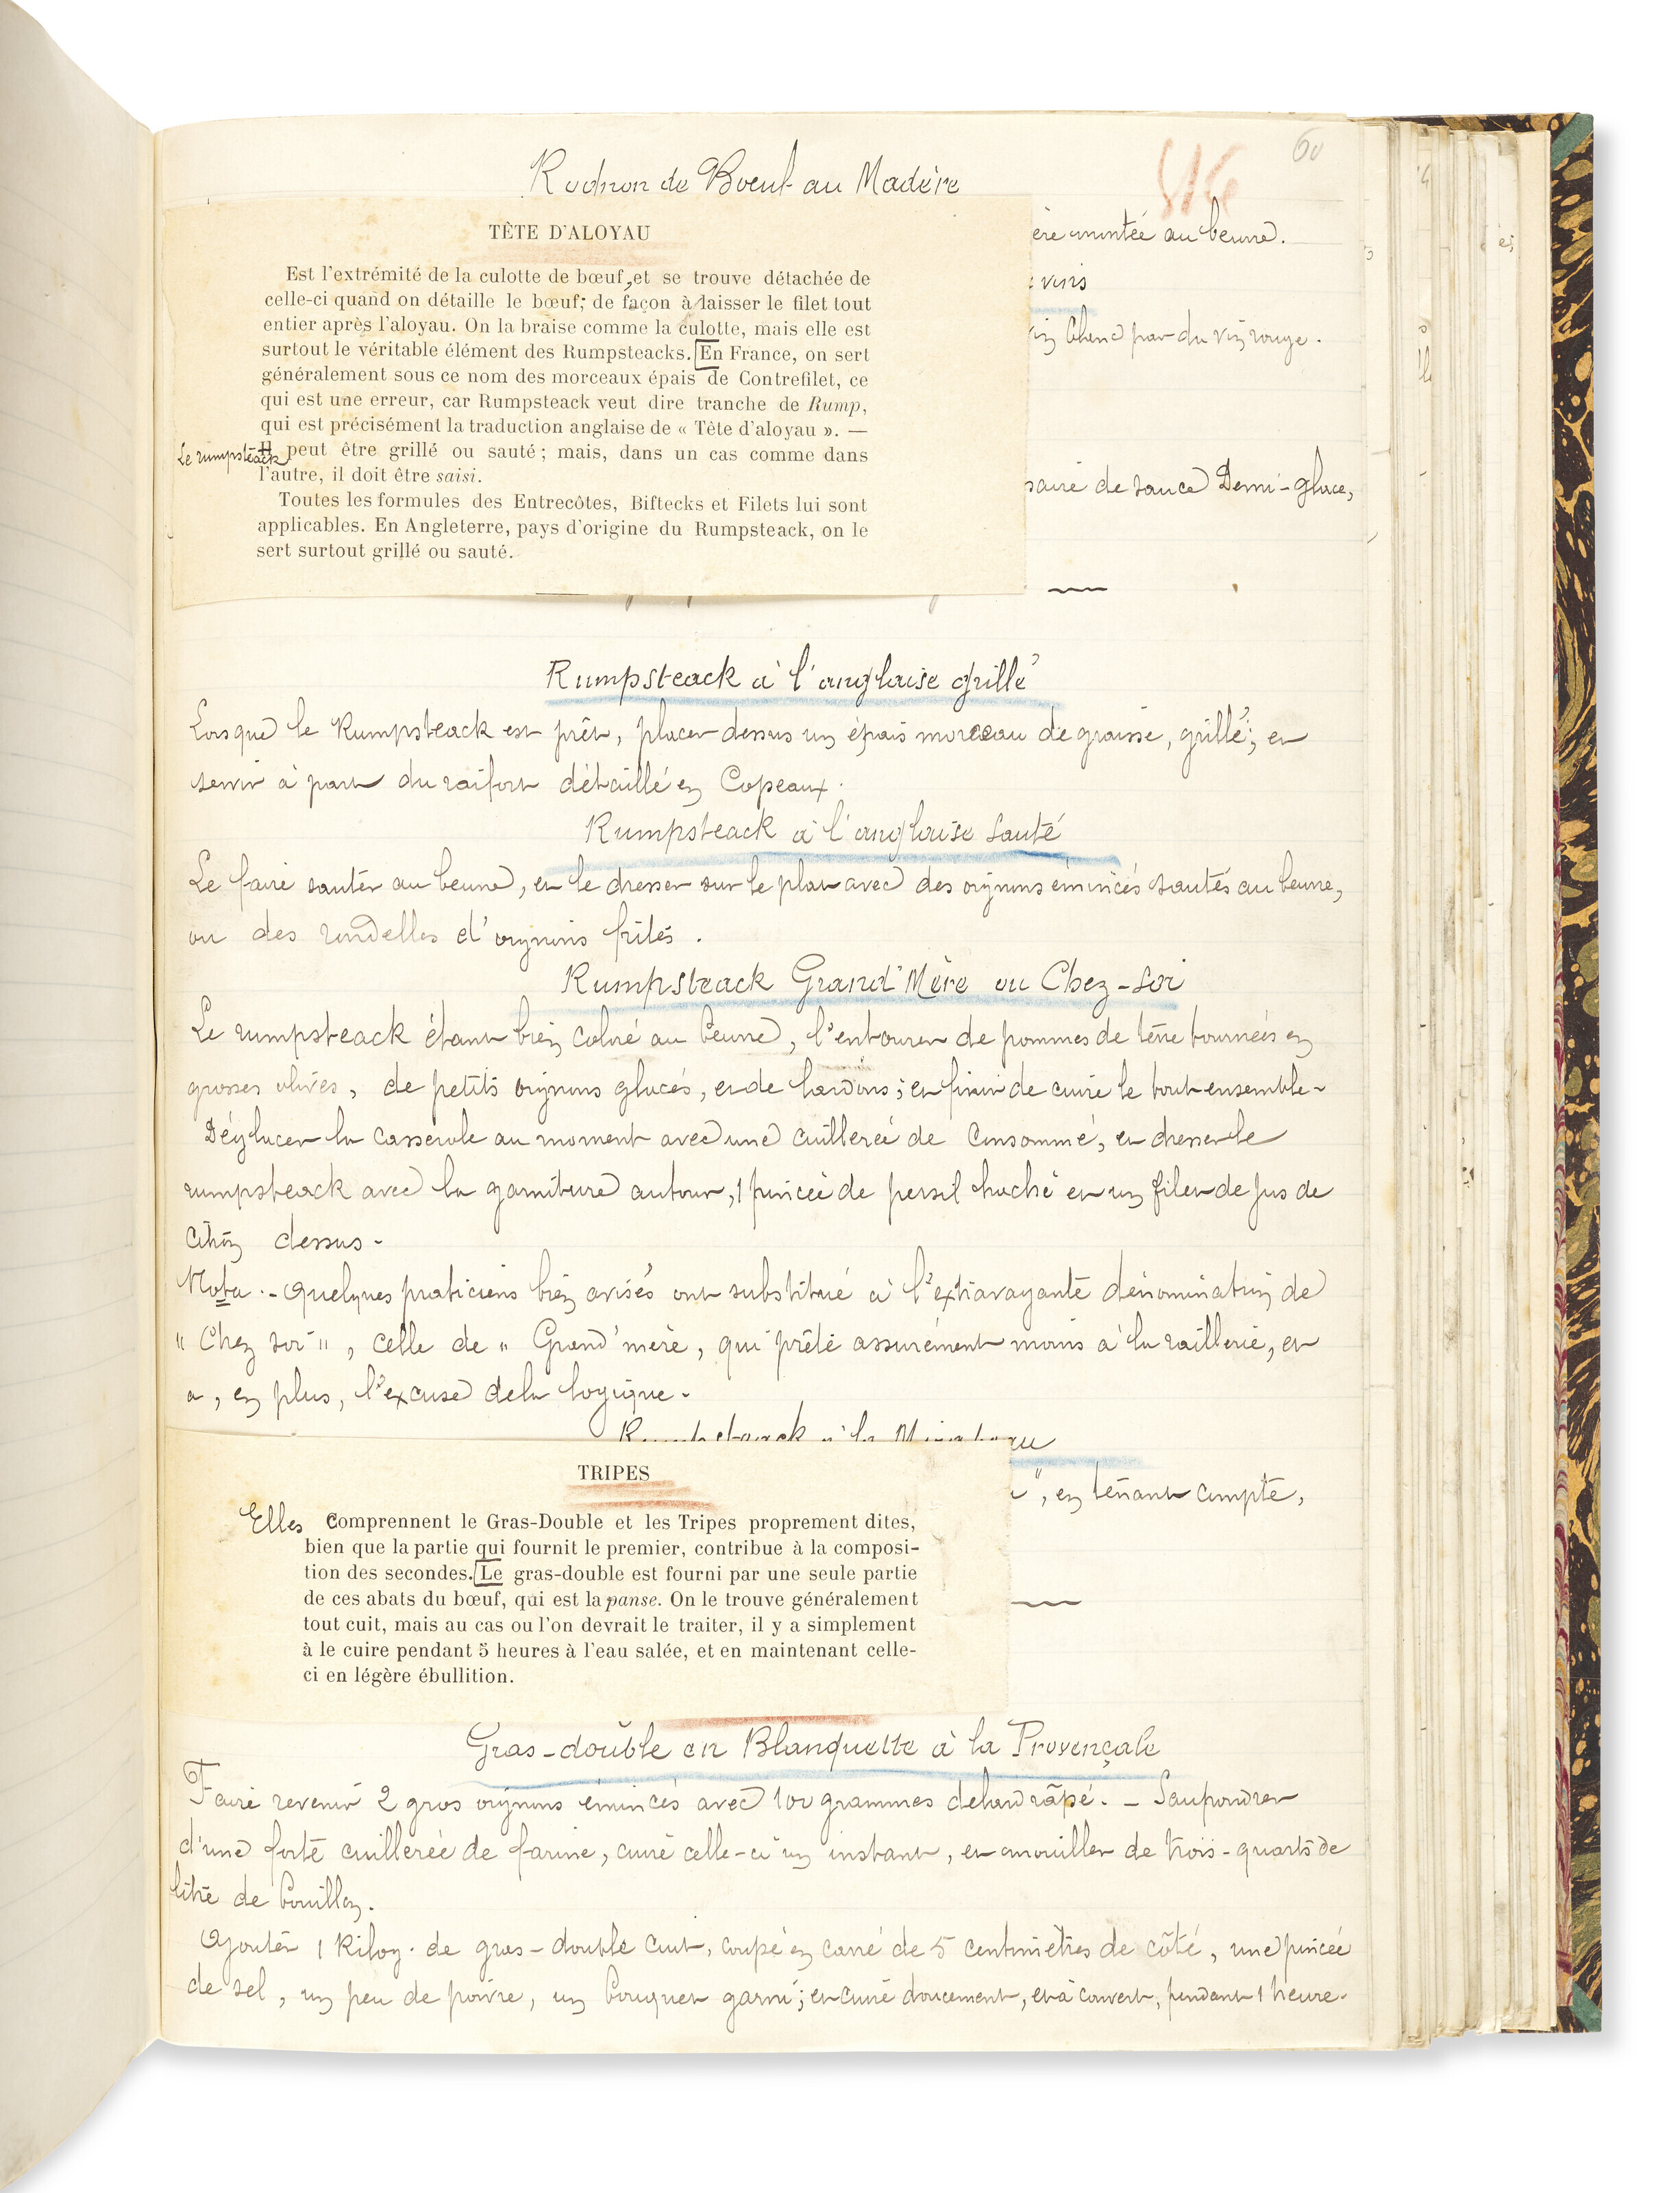 60
Rognon de Bœuf au Madère
TÊTE D'ALOYAU
ère montée au beurre.
Est l'extrémité de la culotte de bœuf, et se trouve détachée de
celle-ci quand on détaille le bœuf; de façon à laisser le filet tout
entier après l'aloyau. On la braise comme la culotte, mais elle est
surtout le véritable élément des Rumpsteacks. En France, on sert
généralement sous ce nom des morceaux épais de Contrefilet, ce
qui est une erreur, car Rumpsteack veut dire tranche de Rump,
qui est précisément la traduction anglaise de « Tête d'aloyau ». —
Le rumpsteack Il peut être grillé ou sauté ; mais, dans un cas comme dans
l'autre, il doit être saisi.
Toutes les formules des Entrecôtes, Biftecks et Filets lui sont
applicables. En Angleterre, pays d'origine du Rumpsteack, on le
sert surtout grillé ou sauté.
par du vin rouge.
saire de sauce Demi-glace,
Rumpsteack à l'anglaise grillé
Lorsque le Rumpsteack est prêt, placer dessus un épais morceau de graisse, grillé; et
servir à part du raifort détaillé en Copeaux.
Rumpsteack à l'anglaise Sauté
Le faire sauter au beurre, et le dresser sur le plat avec des oignons émincés sautés au beurre,
ou des rondelles d'oignons frites.
Rumpsteack Grand'Mère ou Chez-Soi
Le rumpsteack étant bien coloré au beurre, l'entourer de pommes de terre tournées en
grosses olives, de petits oignons glacés, et de lardons; et finir de cuire le tout ensemble-
Déglacer la casserole au moment avec une cuillerée de Consommé, et dresser le
rumpsteack avec la garniture autour, 1 pincée de persil haché et un filet de jus de
citron dessus-
Nota.- Quelques praticiens bien avisés ont substitué à l'extravagante dénomination de
" Chez soi ", celle de " Grand'mère, qui prête assurément moins à la raillerie, et
a, en plus, l'excuse de la logique-
Rumpsteack à la Mirabeau
TRIPES
", en tenant compte,
Elles Comprennent le Gras-Double et les Tripes proprement dites,
bien que la partie qui fournit le premier, contribue à la composi-
tion des secondes. Le gras-double est fourni par une seule partie
de ces abats du bœuf, qui est la panse. On le trouve généralement
tout cuit, mais au cas ou l'on devrait le traiter, il y a simplement
à le cuire pendant 5 heures à l'eau salée, et en maintenant celle-
ci en légère ébullition.
Gras-double en Blanquette à la Provençale
Faire revenir 2 gros oignons émincés avec 100 grammes de lard râpé. - Saupoudrer
d'une forte cuillerée de farine, cuire celle-ci un instant, et mouiller de trois-quarts de
litre de bouillon.
Ajouter 1 Kilog. de gras-double cuit, coupé en carré de 5 centimètres de côté, une pincée
de sel, un peu de poivre, un bouquet garni; et cuire doucement, et à couvert, pendant 1 heure.